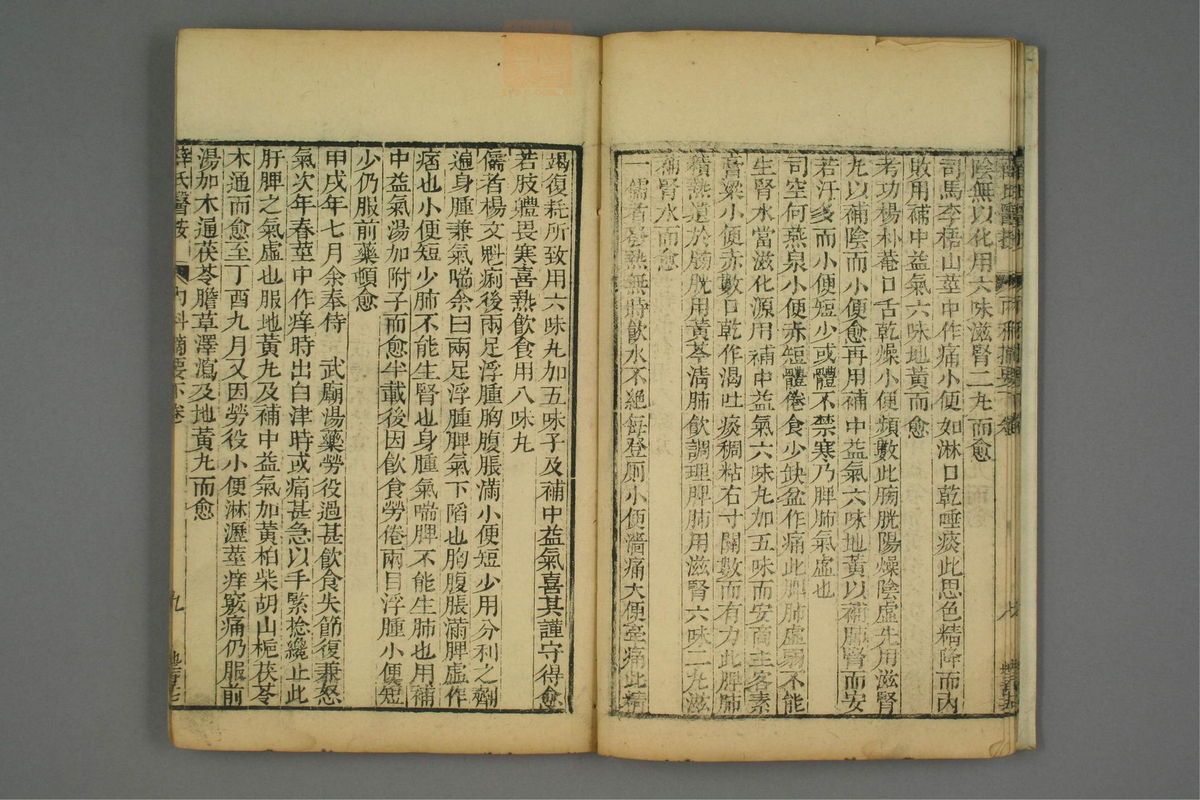 陰無以化用六味滋腎二丸而愈
司馬李梧山莖中作痛小便如淋口乾唾痰此思色精降而內
敗用補中益氣六味地黃而愈
考功楊朴菴口舌乾燥小便頻數此膀胱陽燥陰虛先用滋腎
丸以補陰而小便愈再用補中益氣六味地黃以補肺腎而安
若汗多而小便短少或體不禁寒乃脾肺氣虛也
司空何燕泉小便赤短體倦食少缺盆作痛此脾肺虛弱不能
生腎水當滋化源用補中益氣六味丸加五味而安商主客素
膏粱小便赤數口乾作渴吐痰稠粘右寸關數而有力此脾肺
積熱遺於膀胱用黃芩清肺飲調理脾肺用滋腎六味二丸滋
補腎水而愈
一儒者發熱無時飲水不絕每登厠小便濇痛大便牽痛此精
竭復耗所致用六味丸加五味子及補中益氣喜其謹守得愈
若肢體畏寒喜熱飲食用八味丸
儒者楊文魁痢後兩足浮腫胸腹脹滿小便短少用分利之劑
遍身腫兼氣喘余曰兩足浮腫脾氣下陷也胸腹脹滿脾虛作
痞也小便短少肺不能生腎也身腫氣喘脾不能生肺也用補
中益氣湯加附子而愈半載後因飲食勞倦兩目浮腫小便短
少仍服前藥頓愈
甲戌年七月余奉侍　武廟湯藥勞役過甚飲食失節復兼怒
氣次年春莖中作痒時出白津時或痛甚急以手緊捻纔止此
肝脾之氣虛也服地黃丸及補中益氣加黃柏柴胡山梔茯苓
木通而愈至丁酉九月又因勞役小便淋瀝莖痒竅痛仍服前
湯加木通茯苓膽草澤瀉及地黃丸而愈
薛氏醫按　內科摘要下卷　九